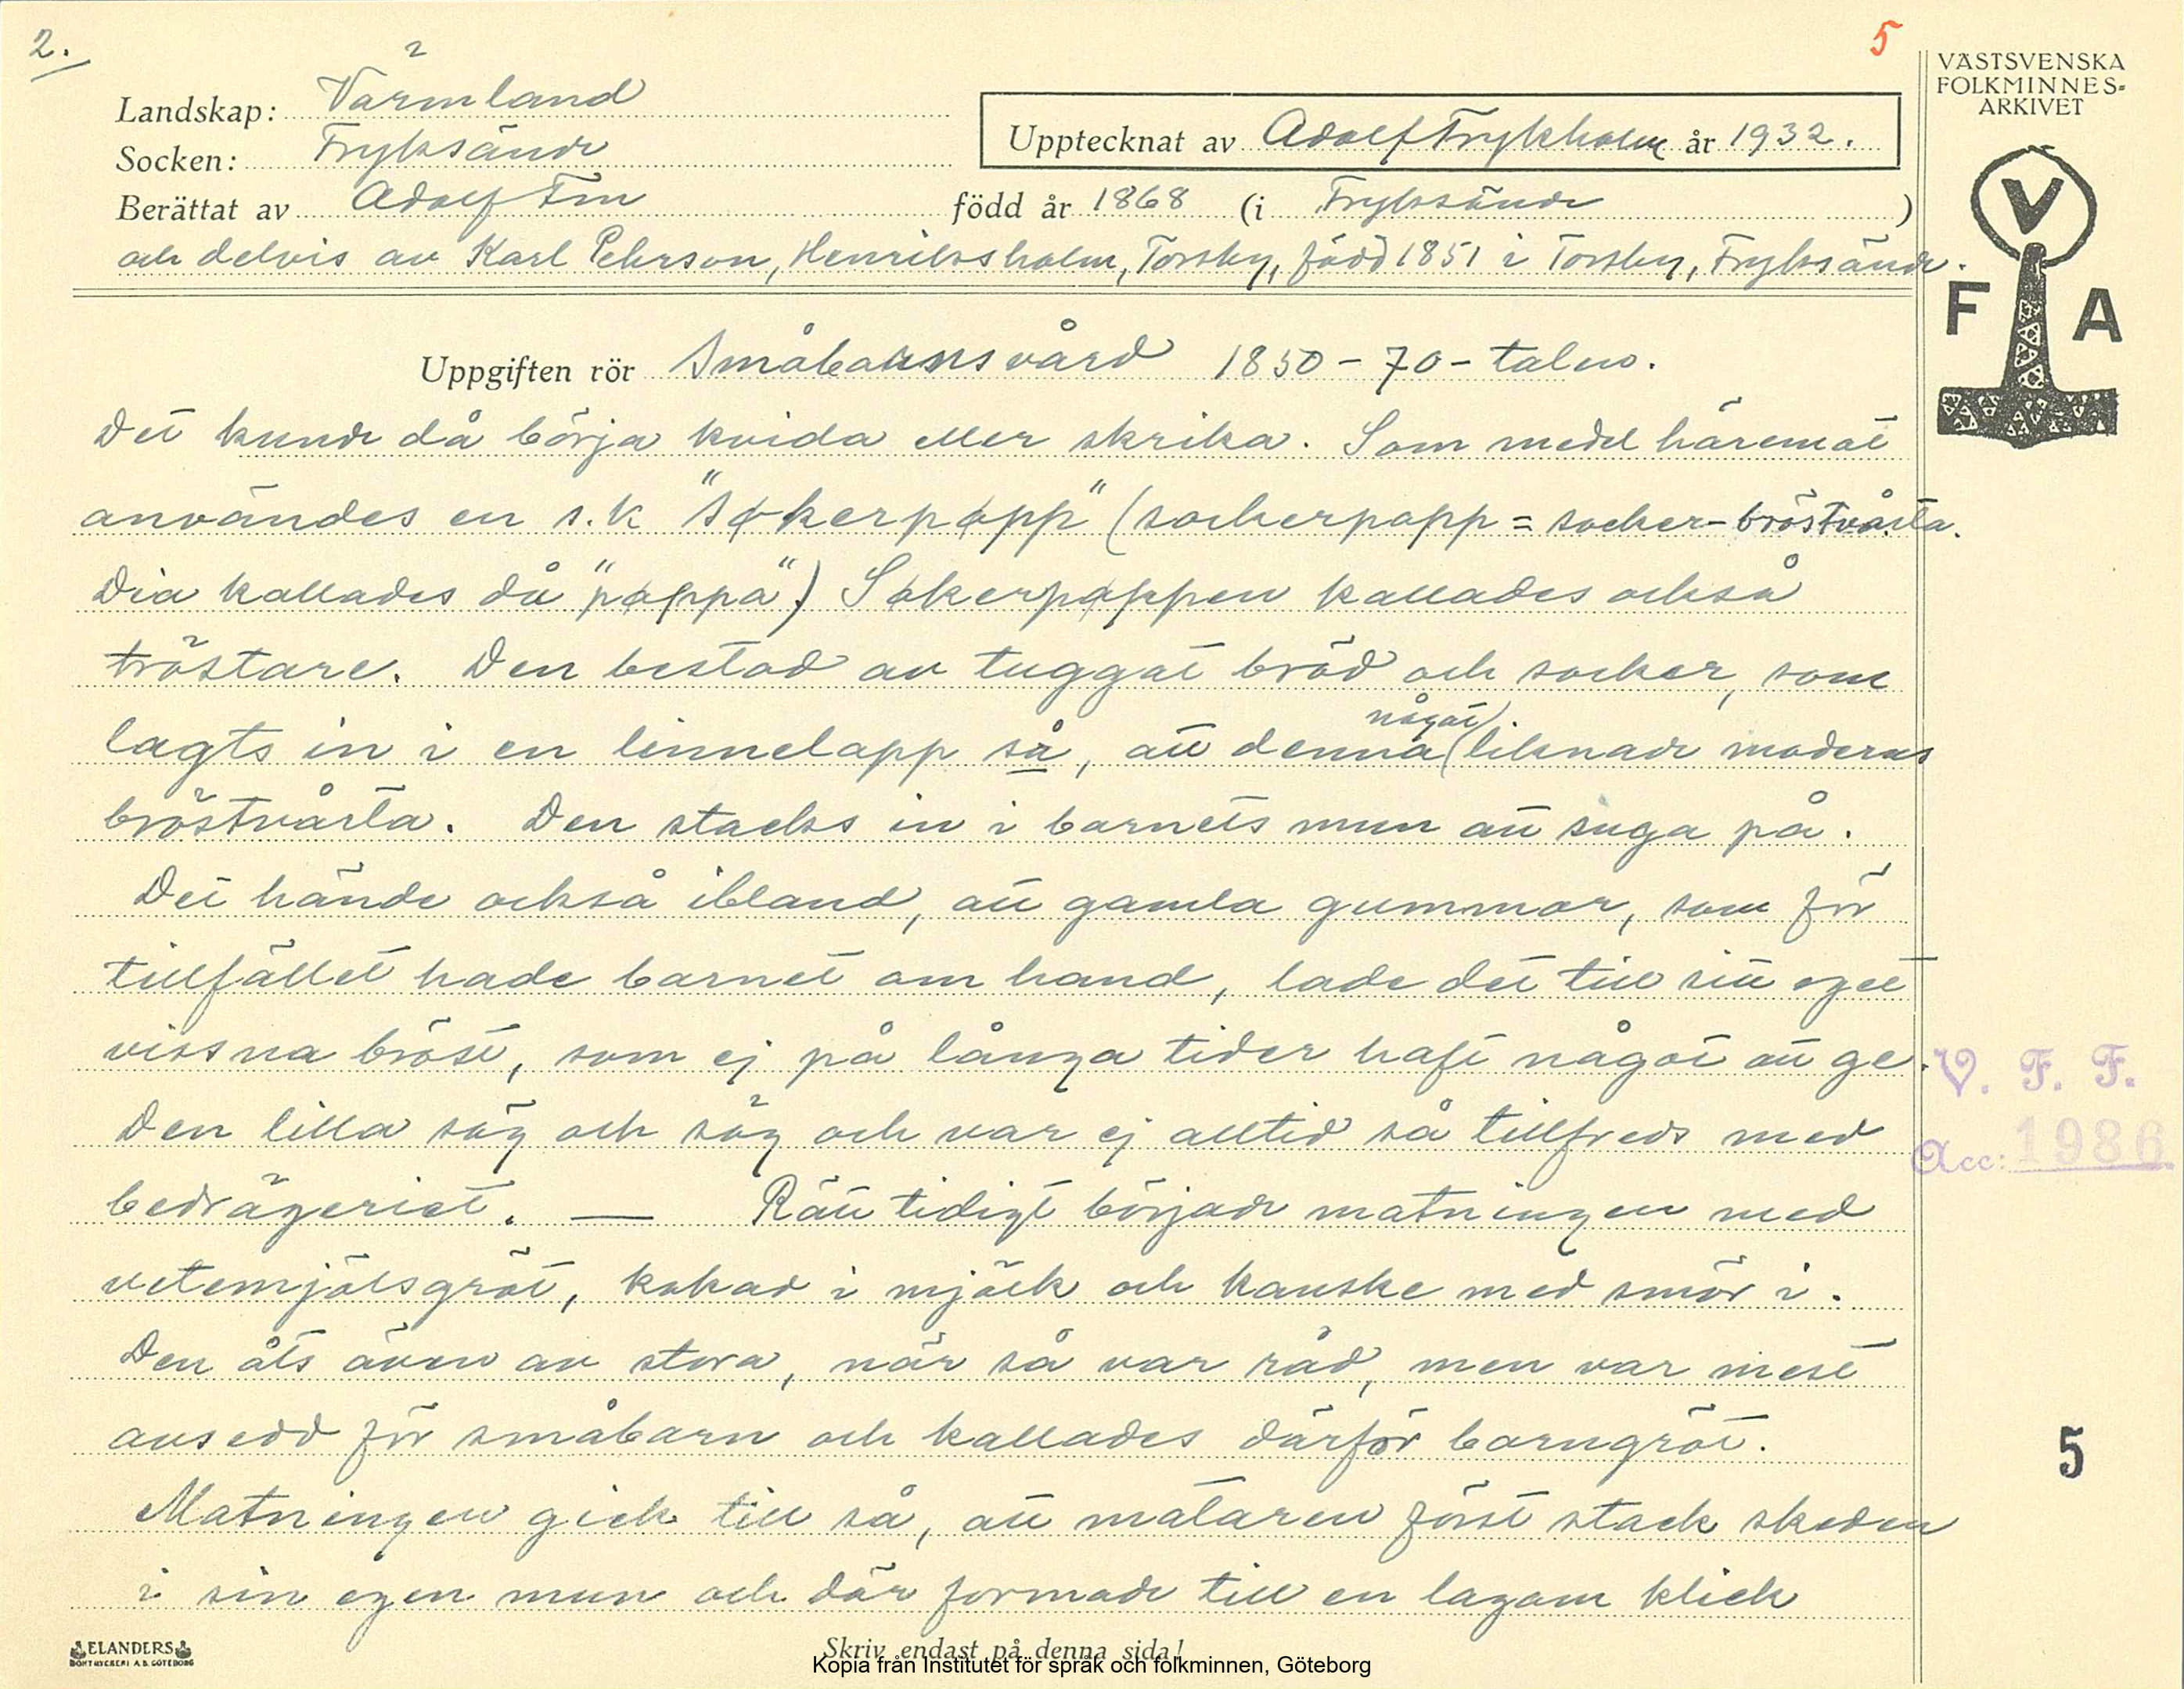 2.
5
VÄSTSVENSKA
FOLKMINNES-
ARKIVET
Landskap: Värmland
Socken: Fryksände
Upptecknat av Adolf Frykholm år 1932.
Berättat av Adolf Fin född år 1868 (i Fryksände)
och delvis av Karl Pehrson, Henriksholm, Torsby, född 1851 i Torsby, Fryksände.
V
F A
Uppgiften rör Småbarnsvård 1850-70-talen.
Det kunde då börja kvida eller skrika. Som medel häremot
användes en s.k "søkerpøpp" (sockerpopp = socker-bröstvårta.
Dia kallades då "pøppa") Søkerpøppen kallades också
tröstare. Den bestod av tuggat bröd och socker, som
lagts in i en linnelapp så, att denna (något) liknade moderns
bröstvårta. Den stacks in i barnets mun att suga på.
Det hände också ibland, att gamla gummor, som för
tillfället hade barnet om hand, lade det till sitt eget
vissna bröst, som ej på långa tider haft något att ge.
Den lilla sög och sög och var ej alltid så tillfreds med
bedrägeriet. — Rätt tidigt började matningen med
vetemjölsgröt, kokad i mjölk och kanske med smör i.
Den åts även av stora, när så var råd, men var mest
ansedd för småbarn och kallades därför barngröt.
Matningen gick till så, att mataren först stack skeden
i sin egen mun och där formade till en lagom klick
V. F. F.
Acc: 1986
5
ELANDERS
BOKTRYCKERI A.B. GÖTEBORG
Skriv endast på denna sida!
Kopia från Institutet för språk och folkminnen, Göteborg